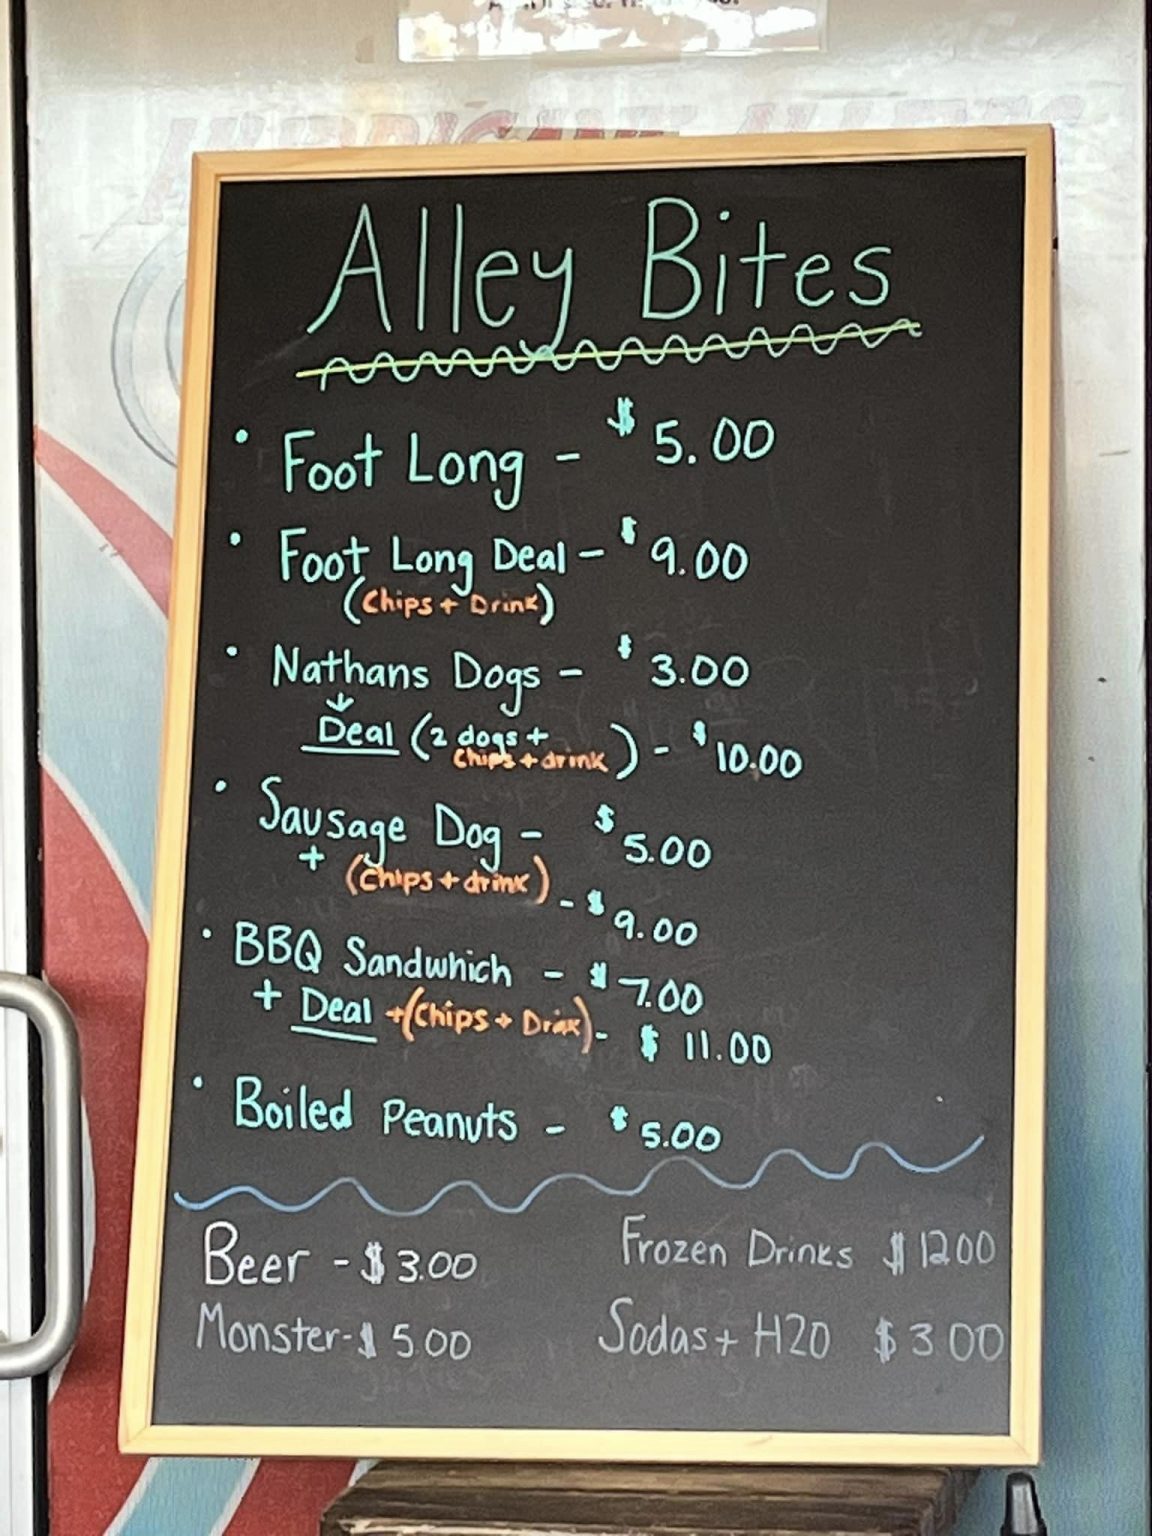 Alley Bites
• Foot Long - $5.00
• Foot Long Deal - $9.00
(Chips + Drink)
• Nathans Dogs - $3.00
↓
Deal (2 dogs +
chips + drink) - $10.00
• Sausage Dog - $5.00
+ (Chips + drink) - $9.00
• BBQ Sandwhich - $7.00
+ Deal + (Chips + Drink) - $11.00
• Boiled Peanuts - $5.00
Beer - $3.00
Frozen Drinks $1200
Monster - $5.00
Sodas + H20 $3.00